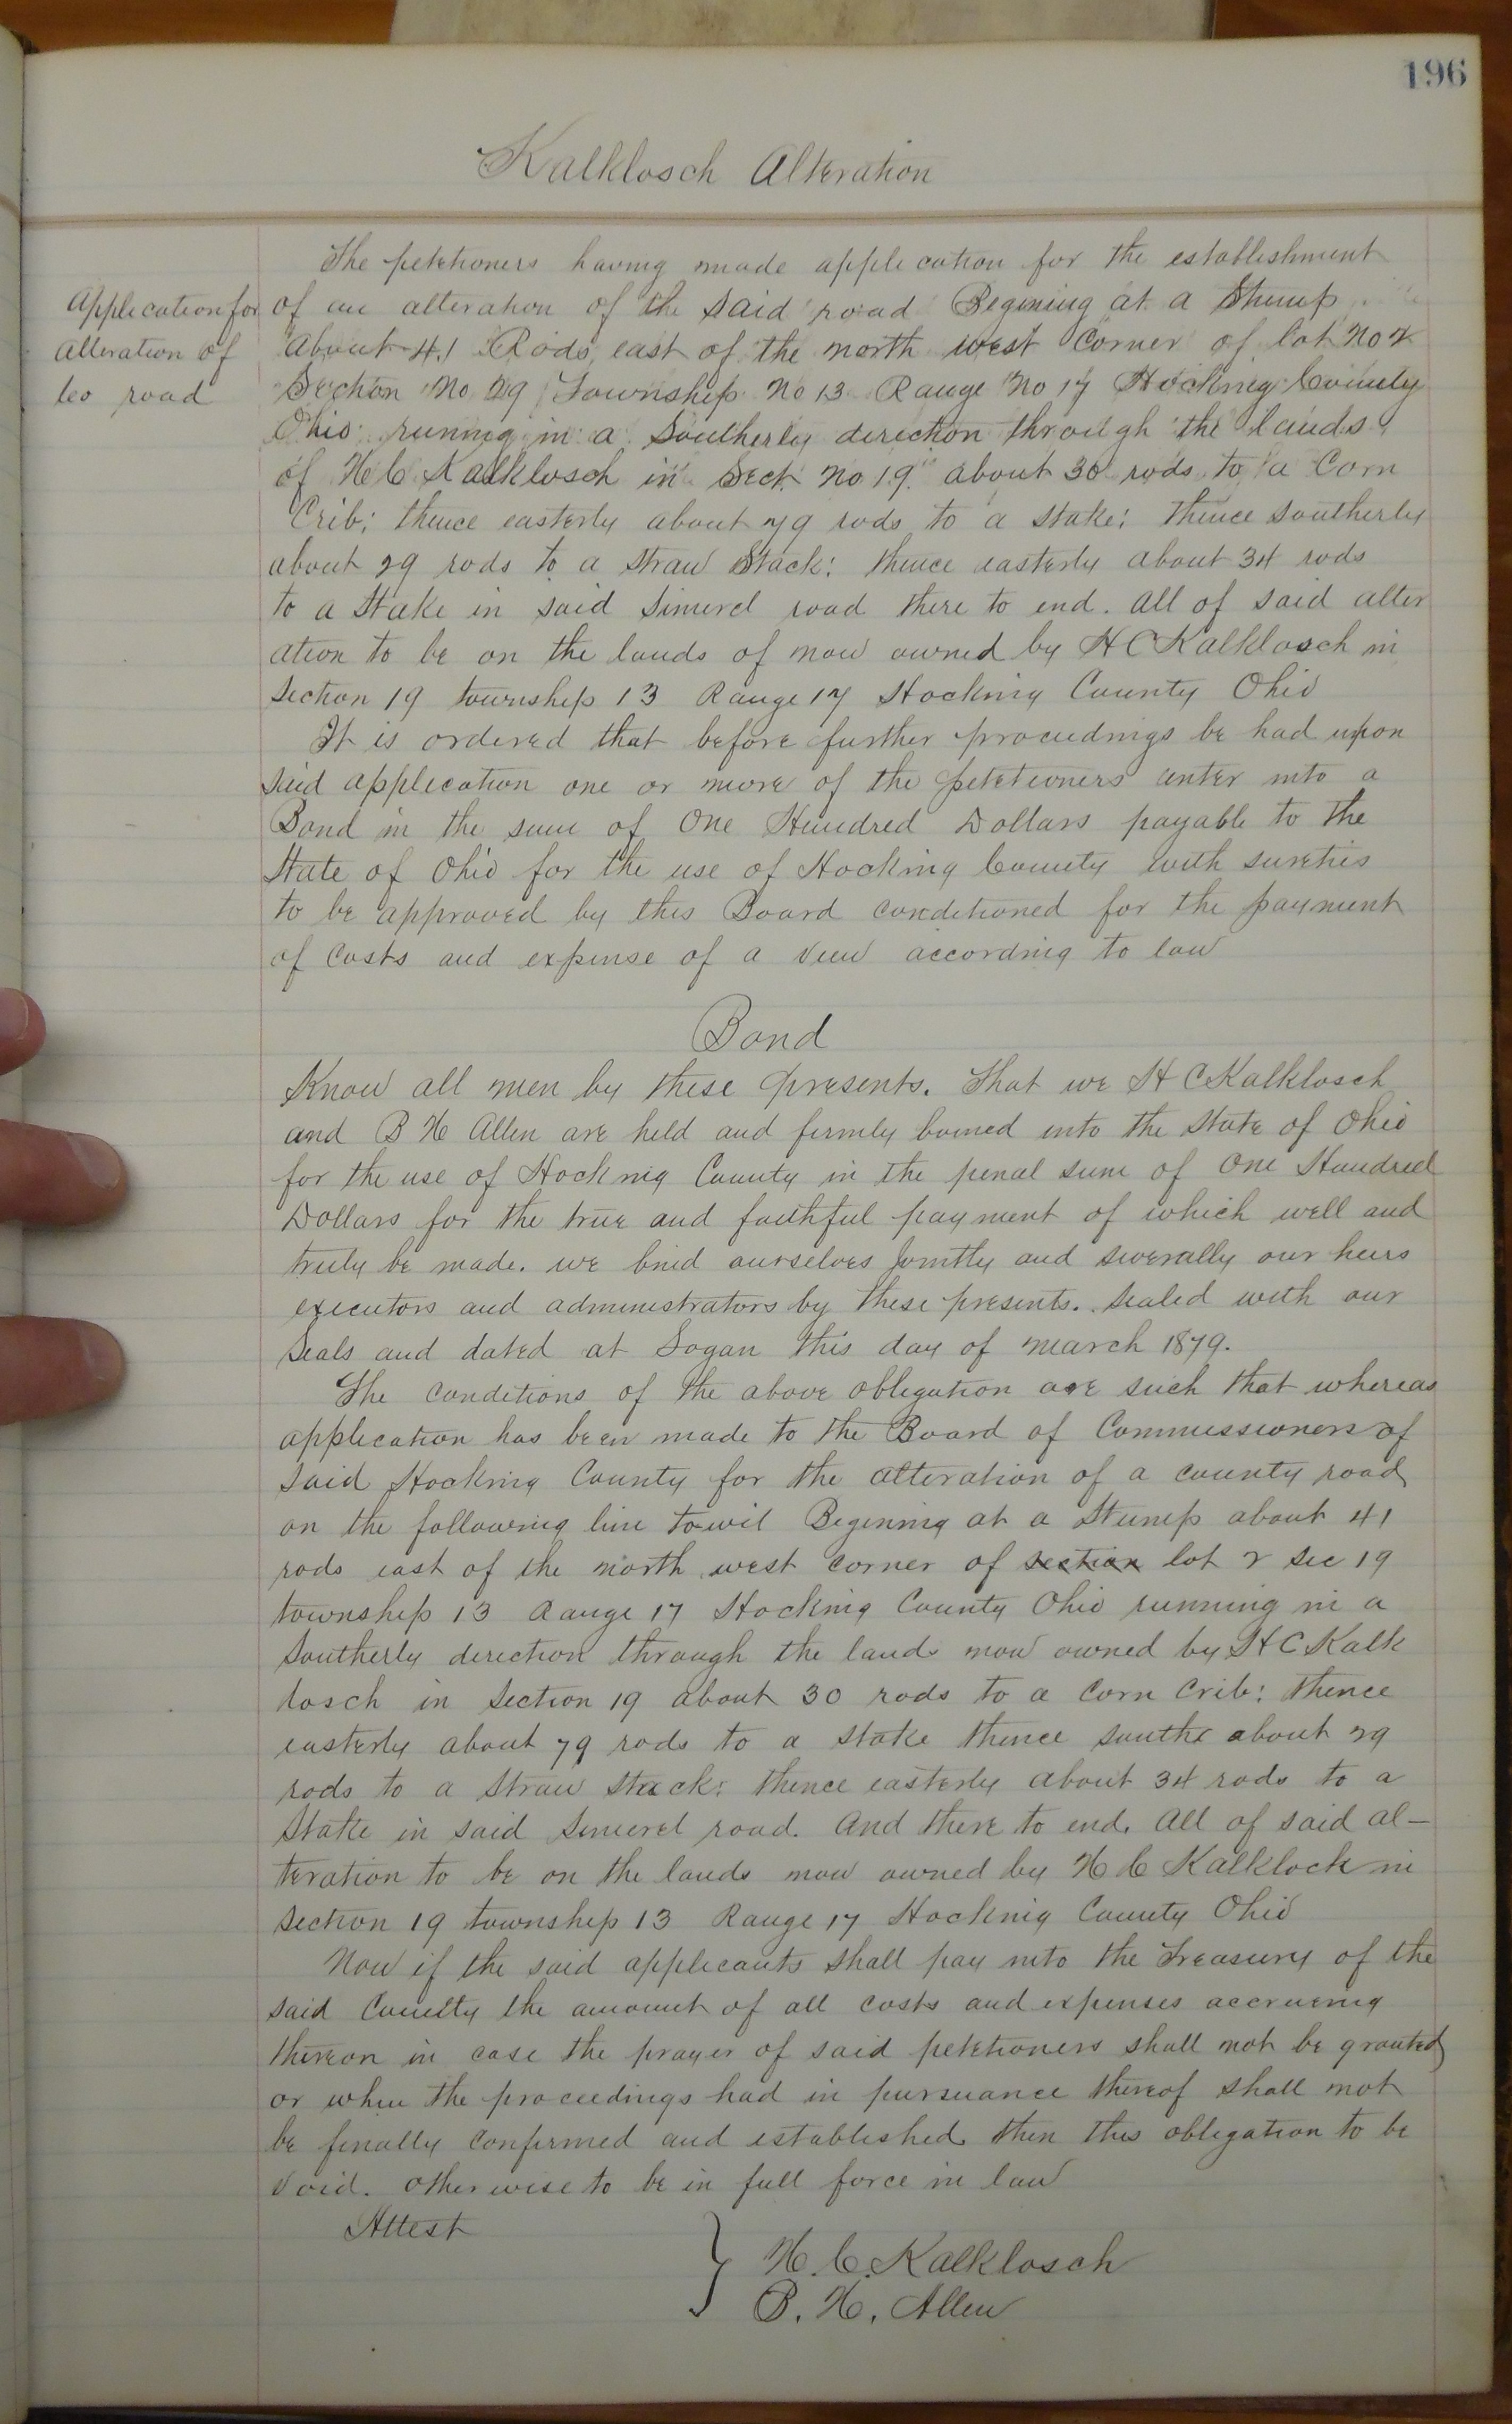 196
Kalklosch Alteration
The petitioners having made application for the establishment
Application for
alteration of
co road
of an alteration of the said road Begining at a Stump
about 41 Rods east of the north west Corner of lot No 2
Section No 19 Township No 13 Range No 17 Hocking County
Ohio running in a Southerly direction through the lands
of H C Kalklosch in Sect No 19 about 30 rods to a Corn
Crib; thence easterly about 79 rods to a stake; thence southerly
about 29 rods to a straw Stack; thence easterly about 34 rods
to a Stake in said road there to end. all of said alter
ation to be on the lands of now owned by H C Kalklosch in
Section 19 township 13 Range 17 Hocking County Ohio
It is ordered that before further proceedings be had upon
said application one or more of the petitioners enter into a
Bond in the sum of One Hundred Dollars payable to the
State of Ohio for the use of Hocking County with sureties
to be approved by this Board conditioned for the payment
of Costs and expense of a view according to law
Bond
Know all men by these presents. That we H C Kalklosch
and B H Allen are held and firmly bound unto the State of Ohio
for the use of Hocking County in the penal sum of One Hundred
Dollars for the true and faithful payment of which well and
truly be made. we bind ourselves jointly and severally our heirs
executors and administrators by these presents. Sealed with our
Seals and dated at Logan this day of March 1879.
The conditions of the above obligation are such that whereas
application has been made to the Board of Commissioners of
said Hocking County for the alteration of a county road
on the following line towit Begining at a Stump about 41
rods east of the north west corner of section lot 2 Sec 19
township 13 Range 17 Hocking County Ohio running in a
Southerly direction through the lands now owned by H C Kalk
losch in Section 19 about 30 rods to a Corn Crib; thence
easterly about 79 rods to a stake thence south about 29
rods to a Straw Stack; thence easterly about 34 rods to a
Stake in said road. And there to end. All of said al-
teration to be on the lands now owned by H C Kalklock in
Section 19 township 13 Range 17 Hocking County Ohio
Now if the said applicants shall pay into the Treasury of the
said County the amount of all costs and expenses accrueing
thereon in case the prayer of said petitioners shall not be granted
or when the proceedings had in pursuance thereof shall not
be finally confirmed and established then this obligation to be
void. otherwise to be in full force in law
Attest
H. C. Kalklosch
B. H. Allen